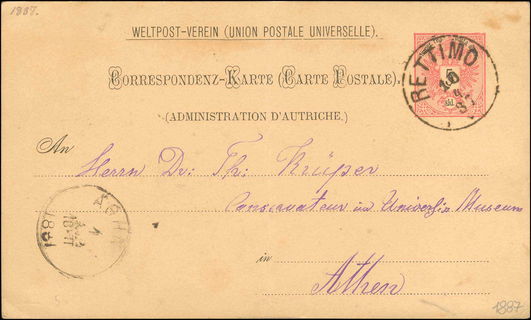 1887.
WELTPOST-VEREIN (UNION POSTALE UNIVERSELLE).
CORRESPONDENZ-KARTE (CARTE POSTALE).
(ADMINISTRATION D'AUTRICHE.)
RETTIMO
5
An
Herrn Dr. Th: Krüper
Conservateur im Universit. Museum
in
Athen
1887
1887